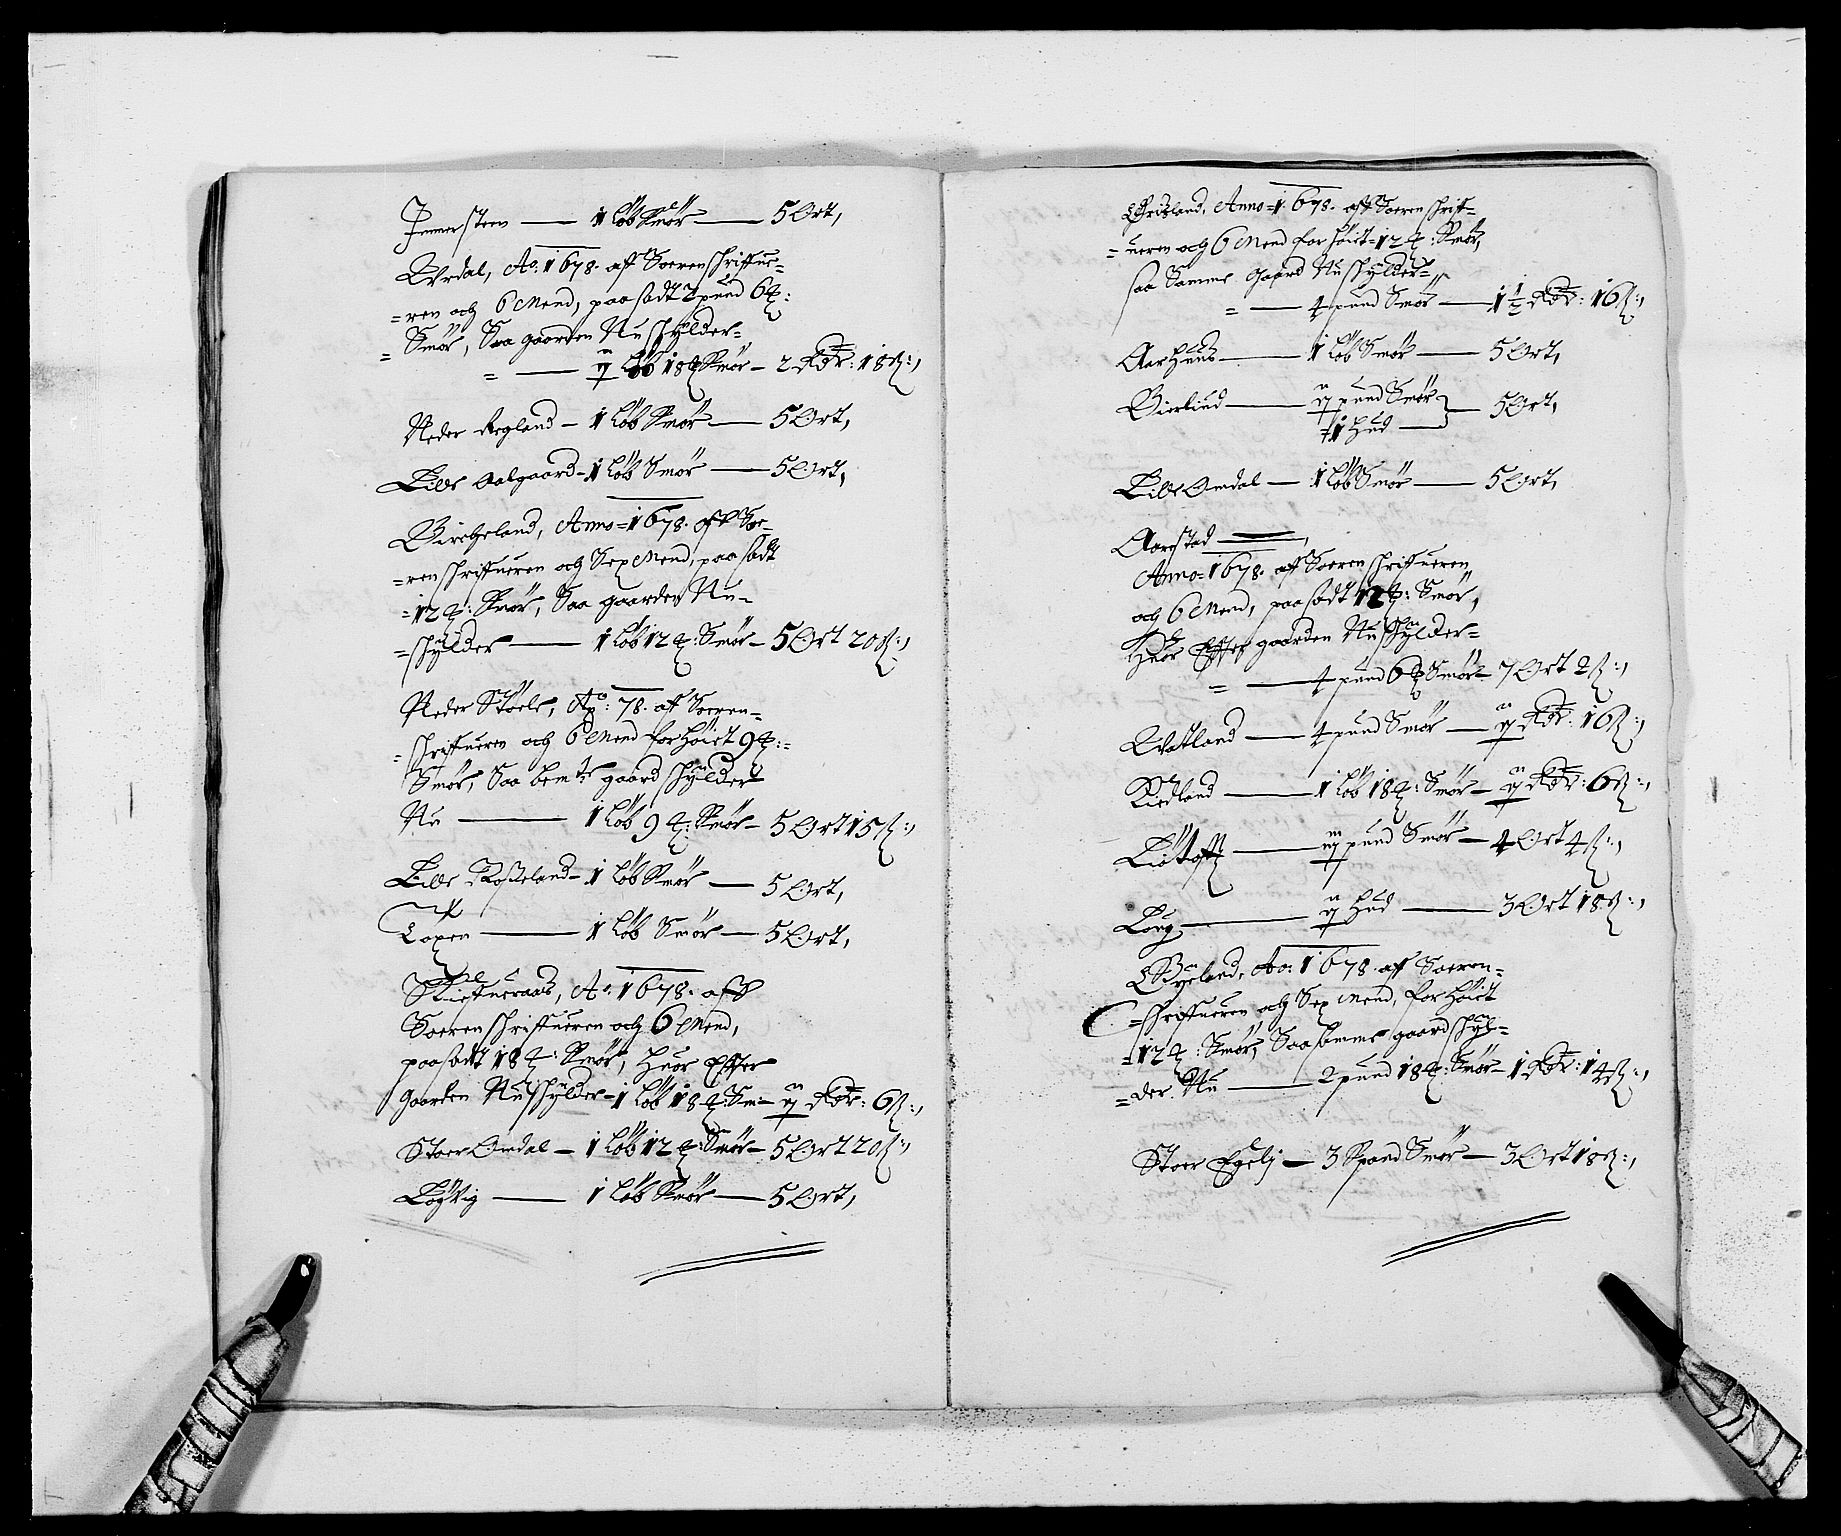 Immersteen — 1 Løb Smør — 5 Ort,
Urdal, Ao: 1678. aff Soerenschriffue-
=ren och 6 Mend, paasadt 2 pund 6 ℔:
= Smør, Saa gaarden Nu schylder=
= — ij Løb 18 ℔ Smør – 2 Rdr: 18 ß:,
Neder Regland – 1 Løb Smør — 5 Ort,
Lille Aalgaard – 1 Løb Smør — 5 Ort,
Bircheland, Anno = 1678. aff Soe-
=renschriffueren och Sex Mend, paasadt
=12 ℔: Smør, Saa gaarden Nu-
=schylder — 1 Løb 12 ℔: Smør – 5 Ort 20 ß:,
Neder Støele, Ao: 78. aff Soeren=
=schriffueren och 6 Mend forhøiet 9 ℔:-
Smør, Saa bemte gaard schylder
Nu — 1 Løb 9 ℔: Smør – 5 Ort 15 ß:,
Lille Rosseland – 1 Løb Smør — 5 Ort,
— 1 Løb Smør — 5 Ort,
Ao: 1678. aff
Soerenschriffueren och 6 Mend,
paasadt 18 ℔: Smør, Huor Effter
gaarden Nu schylder – 1 Løb 18 ℔: Sm – ij Rdr: 6 ß:,
Stoer Omdal – 1 Løb 12 ℔: Smør – 5 Ort 20 ß:,
Løgvig — 1 Løb Smør — 5 Ort,
Grisland, Anno = 1678. aff Soerenschriff=
=ueren och 6 Mend forhøiet = 12 ℔: Smør,
saa Samme gaard Nu schylder=
= — 4 pund Smør — 1½ Rdr: 16 ß:,
Aarhuus — 1 Løb Smør — 5 Ort,
Bierliud — ij pund Smør
1 Hud — 5 Ort,
Lille Omdal — 1 Løb Smør — 5 Ort,
Aarstad —
Anno = 1678. aff Soerenschriffueren
och 6 Mend, paasadt 12 ℔: Smør,
Huor Effter gaarden Nu schylder=
= — 4 pund 6 ℔ Smør – 7 Ort 2 ß:,
Watland — 4 pund Smør — ij Rdr: 16 ß:,
Kiedland — 1 Løb 18 ℔: Smør – ij Rdr: 6 ß:,
— iij pund Smør – 4 Ort 4 ß:,
Løug — ij Hud — 3 Ort 18 ß:,
Byeland, Ao: 1678. aff Soeren=
=schriffueren och Sex Mend, forhøiet
=12 ℔: Smør, Saa samme gaard schyl=
=der Nu — 2 pund 18 ℔: Smør – 1 Rdr: 14 ß:,
Stoer Egelj – 3 Spand Smør – 3 Ort 18 ß:,